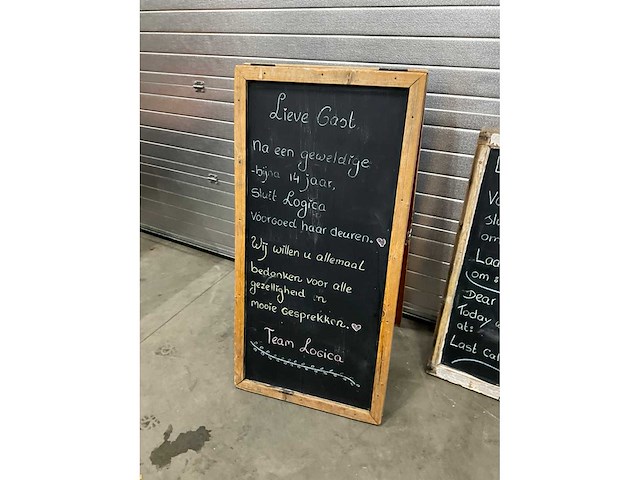 Lieve Gast
Na een geweldige
-bijna 14 jaar,
Sluit Logica
voorgoed haar deuren.
Wij willen u allemaal
bedanken voor alle
gezelligheid en
mooie gesprekken.
Team Logica
L
Vo
Slu
om
Laa
om :
Dear
Today w
at:
Last Cal